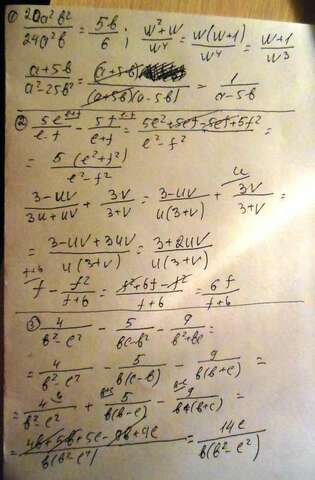 ① 20a²b² / 24a²b = 5b / 6 ; w²+w / w⁴ = w(w+1) / w⁴ = w+1 / w³
a+5b / a²-25b² = (a+5b) / (a+5b)(a-5b) = 1 / a-5b
② 5e / e-f - 5f / e+f = 5e²+5ef-5ef+5f² / e²-f² =
= 5(e²+f²) / e²-f²
3-uv / 3u+uv + 3v / 3+v = 3-uv / u(3+v) + 3v / 3+v =
= 3-uv+3uv / u(3+v) = 3+2uv / u(3+v)
f - f² / f+6 = f²+6f-f² / f+6 = 6f / f+6
③ 4 / b²-c² - 5 / bc-b² - 9 / b²+bc =
= 4 / b²-c² - 5 / b(c-b) - 9 / b(b+c) =
= 4 / b²-c² + 5 / b(b-c) - 9 / b(b+c) =
= 4b+5b+5c-9b+9c / b(b²-c²) = 14c / b(b²-c²)